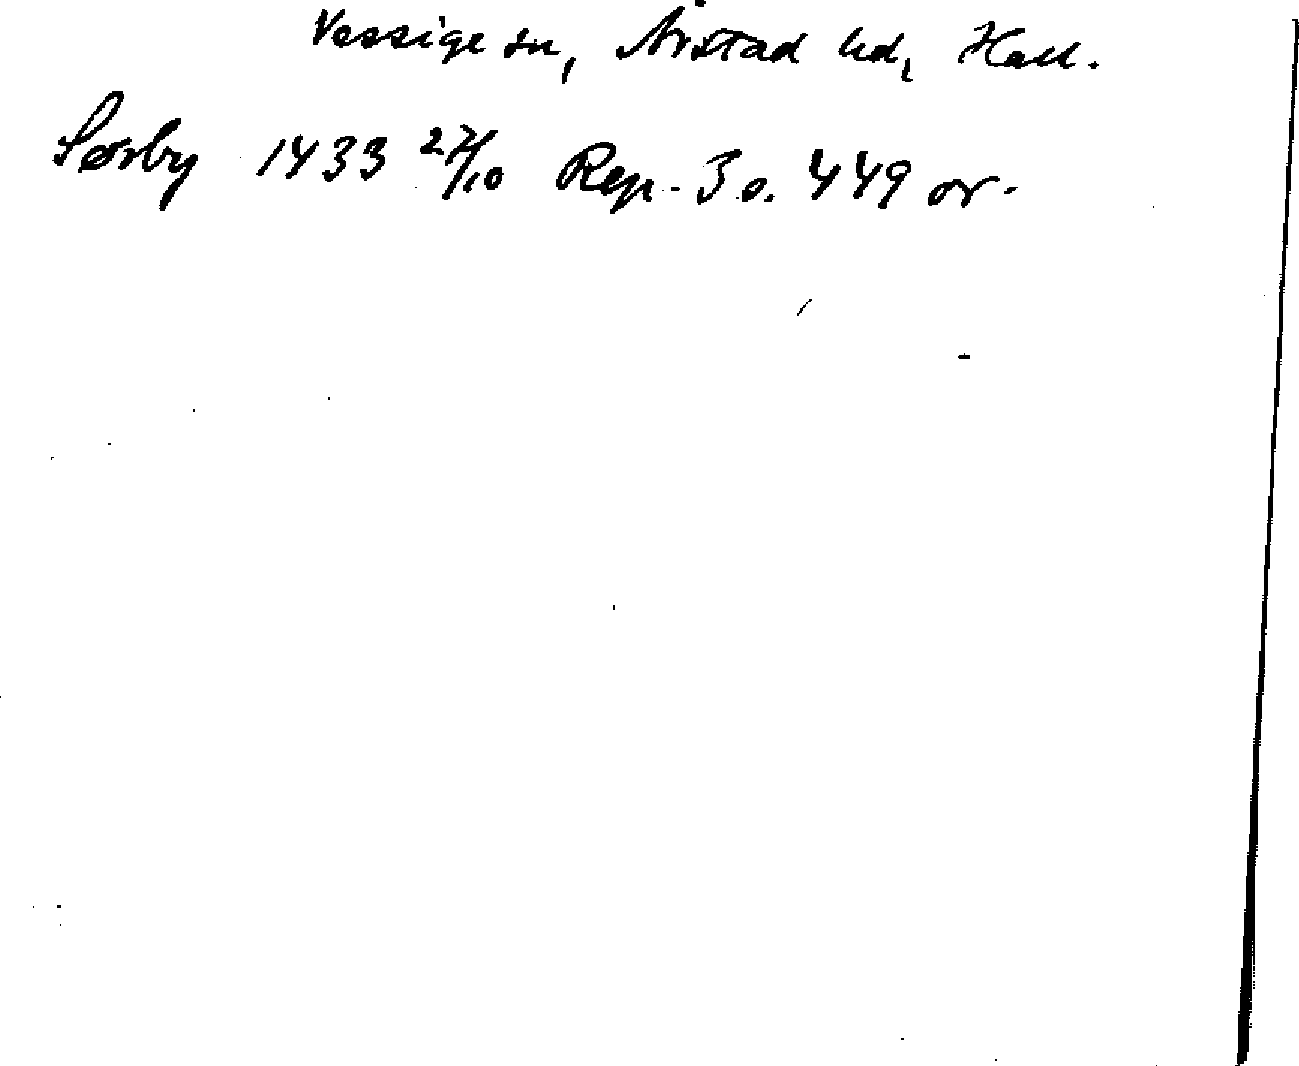 Vessige sn, Årstad hd, Hall.
Sørby 1433 27/10 Rep. 3 s. 449 or.